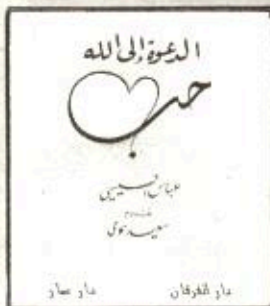 الدعوة إلى الله
حب
عباس السيسي
تقديم
سعيد حوى
دار الفرقان دار عمار